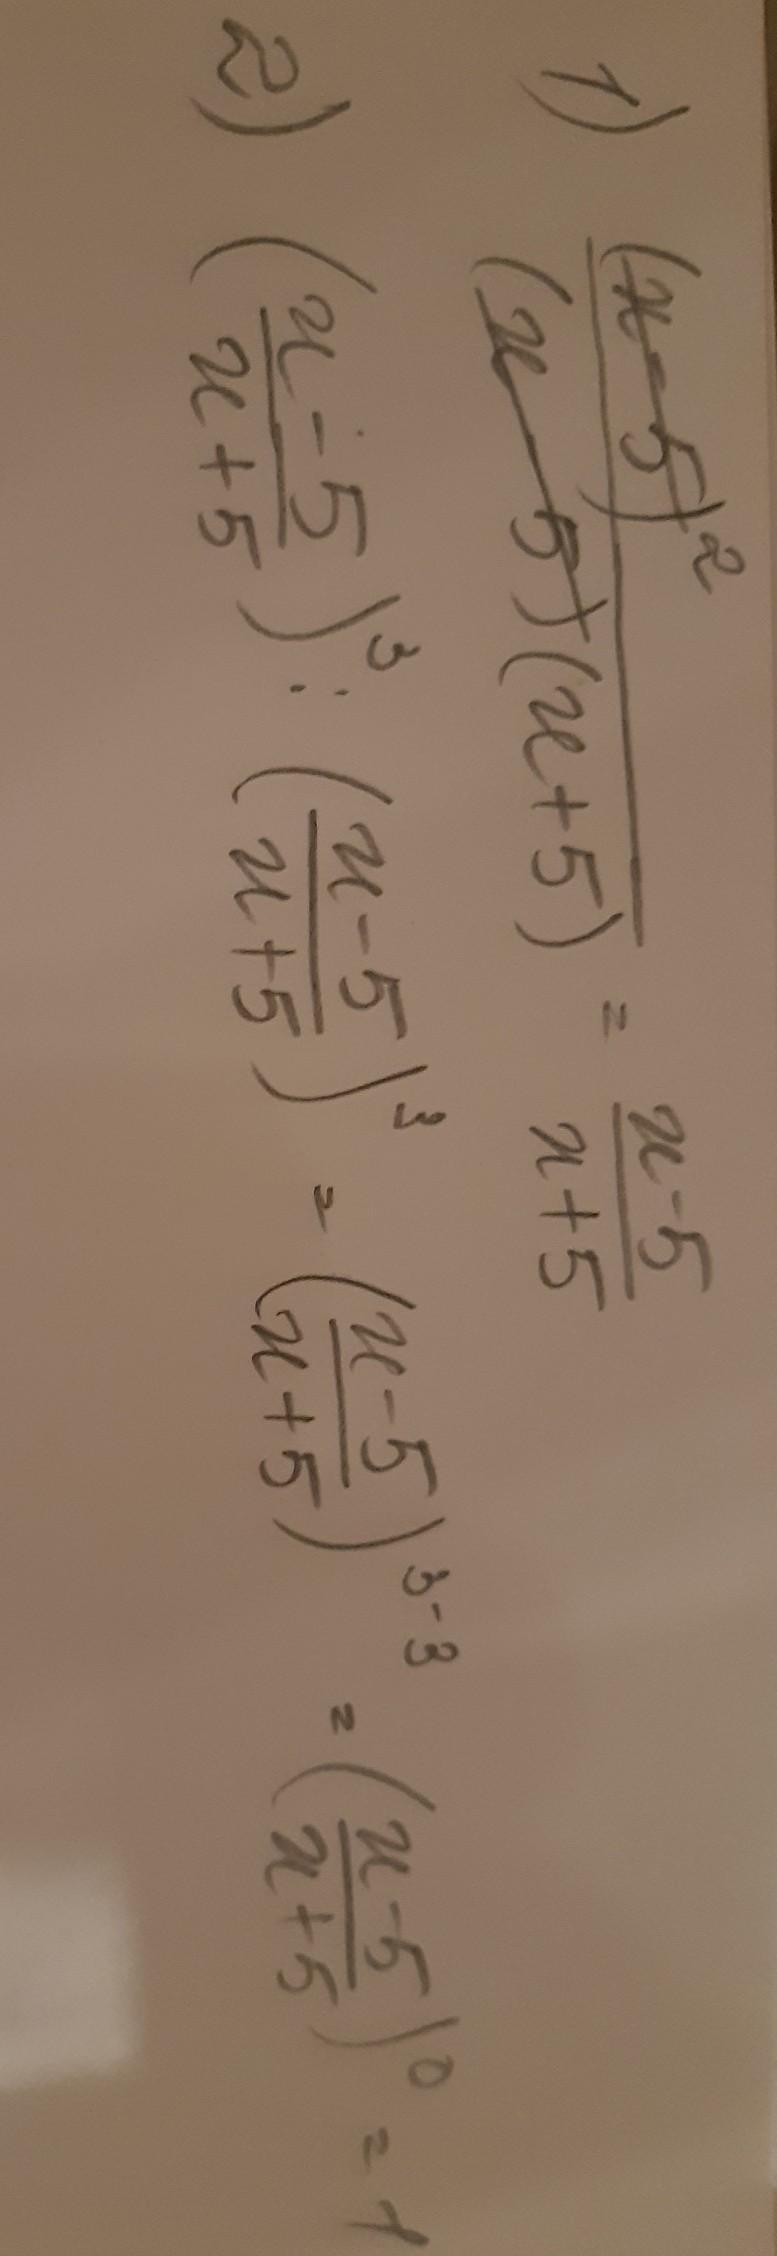 1) (x-5)²/(x-5)(x+5) = x-5/x+5
2) (x-5/x+5)³ : (x-5/x+5)³ = (x-5/x+5)³⁻³ = (x-5/x+5)⁰ = 1